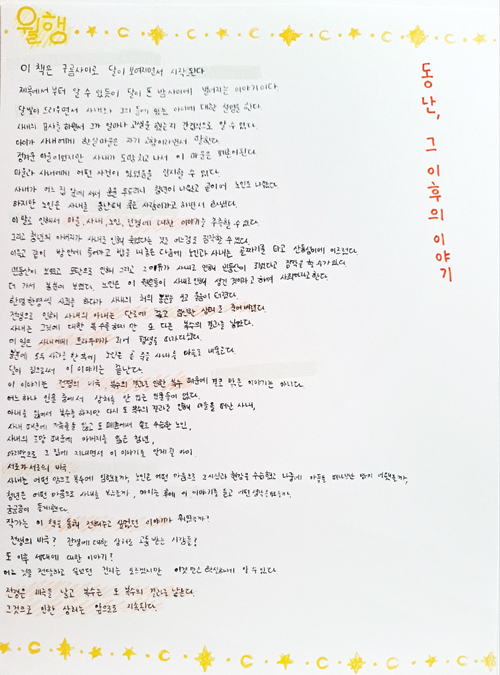 월행
동란, 그 이후의 이야기
이 책은 구름사이로 달이 보여지면서 시작된다.
제목에서부터 알 수 있듯이 달이 뜬 밤사이에 벌어지는 이야기이다.
달빛이 드리우면서 사내와 그의 등에 있는 아이에 대한 설명을 한다.
사내의 묘사를 하면서 그가 얼마나 고생을 했는지 간접적으로 알 수 있다.
아이가 사내에게 한 마을은 자기 고향이라면서 말한다.
정겨운 마을이었지만 사내가 도망치고 나서 이 마을은 폐촌이 된다.
마을과 사내에게 어떤 사건이 있었음을 암시할 수 있다.
사내가 어느 집 앞에 서서 문을 두드리니 청년이 나왔고 곧이어 노인도 나왔다.
하지만 노인은 사내를 동란때 죽은 사람이라고 하면서 보내버렸다.
이 말로 인해서 마을, 사내, 노인, 전쟁에 대한 이야기를 추측할 수 있다.
그리고 청년의 아버지가 사내로 인해 죽었다는 것을 짐작할 수 있다.
이들은 같이 방 안에 들어가고 밥을 내온 다음에 노인과 사내는 골짜기를 타고 산등성이에 이르렀다.
더 가서 봉분에 보였다. 노인은 이 원분들이 사내로 인해 생긴 것이라고 하며 사죄하라고 한다.
한명 한명씩 사죄를 하다가 사내의 처의 봉분을 보고 울음이 터졌다.
전쟁으로 인해 사내의 아내는
사내는 그것에 대한 복수를 하지만 또 다른 복수의 결과를 낳았다.
이 일은 사내에게 트라우마가 되어 평생을 따라다녔다.
봉분에 모두 사죄를 한 뒤에 노인은 사내를 마을로 내보낸다.
달이 짐으로써 이 이야기는 끝난다.
이 이야기는 전쟁의 비극, 복수의 결과로 인한 복수 때문에 결코 맑은 이야기는 아니다.
어느 하나 인물 중에서 상처를 안 입은 인물들이 없다.
아내를 잃어서 복수를 하지만 다시 또 복수의 결과로 인해 마을을 떠난 사내,
사내 때문에 자식들을 잃고 또 폐촌에서 홀로 수습한 노인,
사내의 도망 때문에 아버지를 잃은 청년,
마지막으로 그 집에 지내면서 이 이야기를 알게 될 아이.
서로가 서로의 비극.
사내는 어떤 맘으로 복수에 임했을까, 노인은 어떤 마음으로 그 시신과 현장을 수습했고 나중에 마을을 떠나지 않았을까,
청년은 어떤 마음으로 사내를 보았을까, 아이는 후에 이 이야기를 듣고 어떤 생각을 했을까,
궁금증이 들게했다.
작가는 이 책을 통해 전해주고 싶었던 이야기가 뭐였을까?
전쟁의 비극? 전쟁에 대한 상처로 고통 받는 사람들?
또 이후 세대에 대한 이야기?
어느 것을 전달하고 싶었던 건지는 모르겠지만 이것만은 확실하게 알 수 있다.
전쟁은 비극을 낳고 복수는 또 복수의 결과를 낳는다.
그것으로 인한 상처는 앞으로도 지속된다.